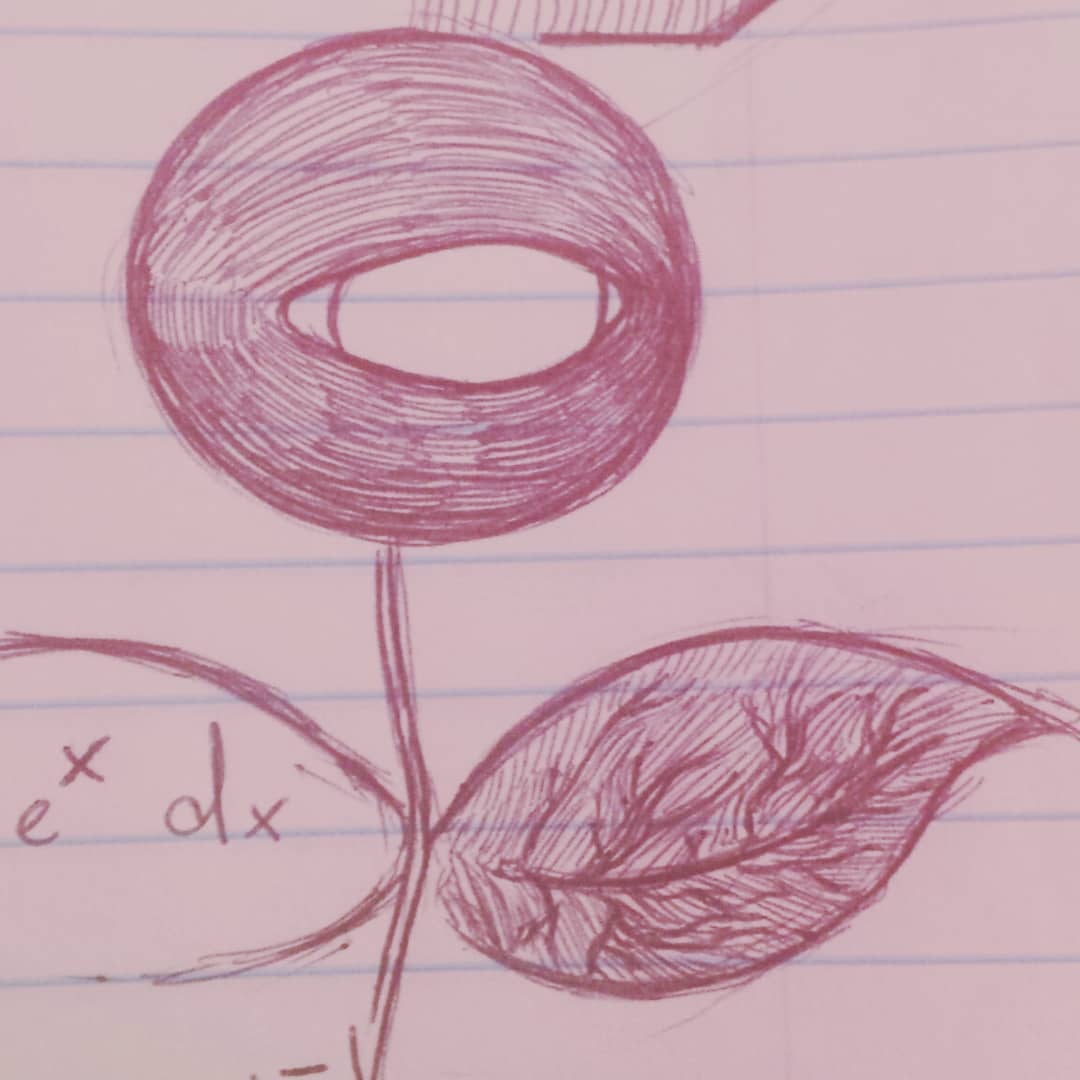 e^x dx